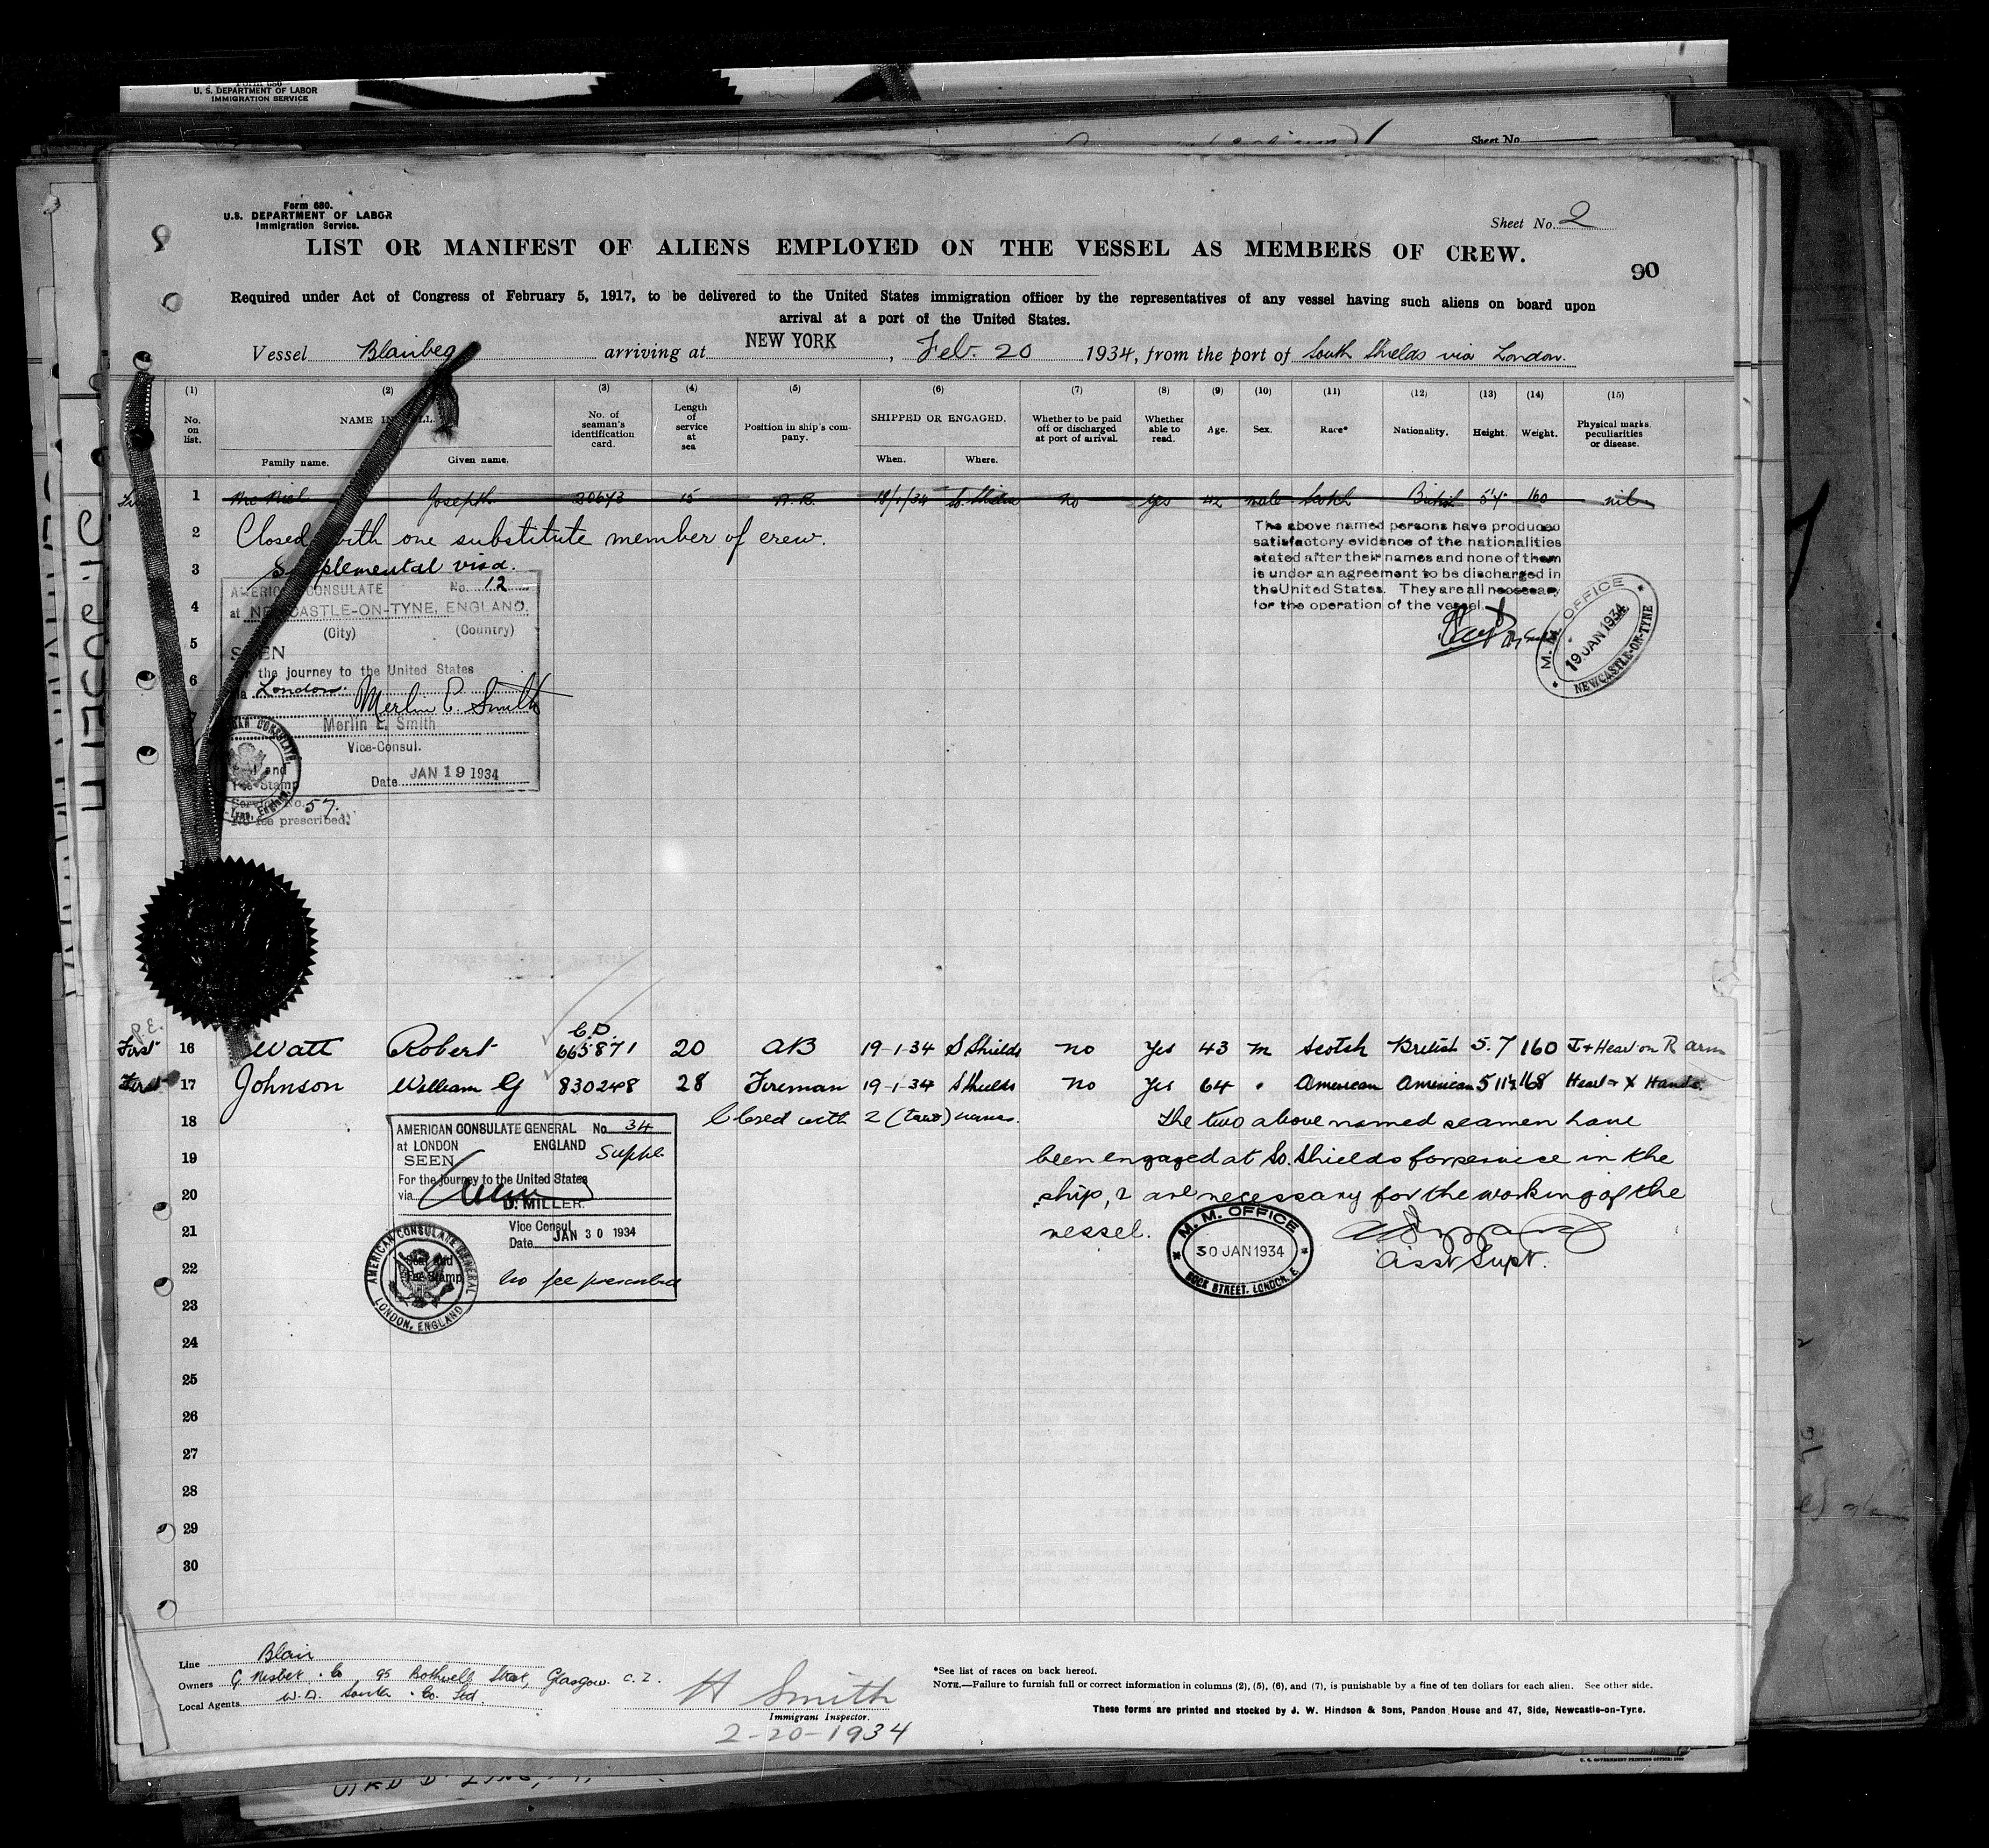 U. S. DEPARTMENT OF LABOR
IMMIGRATION SERVICE
Sheet No.
Form 680.
U.S. DEPARTMENT OF LABOR
Immigration Service.
Sheet No. 2
LIST OR MANIFEST OF ALIENS EMPLOYED ON THE VESSEL AS MEMBERS OF CREW.
90
Required under Act of Congress of February 5, 1917, to be delivered to the United States immigration officer by the representatives of any vessel having such aliens on board upon
arrival at a port of the United States.
Vessel Blairbeg arriving at NEW YORK, Feb. 20 1934, from the port of South Shields via London.
(1) (2) (3) (4) (5) (6) (7) (8) (9) (10) (11) (12) (13) (14) (15)
No. on list. NAME IN FULL. No. of seaman's identification card. Length of service at sea Position in ship's company. SHIPPED OR ENGAGED. Whether to be paid off or discharged at port of arrival. Whether able to read. Age. Sex. Race* Nationality. Height. Weight. Physical marks, peculiarities or disease.
Family name. Given name. When. Where.
1 Mc Niel Joseph 20673 15 A.B. 18/1/34 So. Shields no yes 42 male Scotch British 5'4" 160 nil
2 Closed with one substitute member of crew.
The above named persons have produced
satisfactory evidence of the nationalities
stated after their names and none of them
is under an agreement to be discharged in
the United States. They are all necessary
for the operation of the vessel.
M. M. OFFICE
19 JAN 1934
NEWCASTLE-ON-TYNE
3 Supplemental visa.
AMERICAN CONSULATE No. 12
4 at NEWCASTLE-ON-TYNE, ENGLAND.
(City) (Country)
5 SEEN
For the journey to the United States
6 via London.
Merlin E. Smith
7 Merlin E. Smith
Vice-Consul.
Date JAN 19 1934
Service No. 57.
No fee prescribed.
P.E.
C.D.
First 16 Watt Robert 665871 20 AB 19-1-34 S Shields no Yes 43 m Scotch British 5.7 160 J + Heart on R arm
First 17 Johnson William G 830248 28 Fireman 19-1-34 S Shields No Yes 64 " American American 5 11½ 168 Heart & X Hands.
18 Closed with 2 (two) names. The two above named seamen have
19 been engaged at So. Shields for service in the
20 ship, & are necessary for the working of the
21 vessel.
Asst Supt.
M. M. OFFICE
30 JAN 1934
DOCK STREET, LONDON, E.
AMERICAN CONSULATE GENERAL No. 34
at LONDON ENGLAND Suppl.
SEEN
For the journey to the United States
via
D. MILLER.
Vice Consul
Date JAN 30 1934
Seal and
Fee Stamp
No fee prescribed
AMERICAN CONSULATE GENERAL
LONDON, ENGLAND
22
23
24
25
26
27
28
29
30
Line Blair
Owners G. Nisbet & Co 95 Bothwell Street, Glasgow. C. 2.
Local Agents Co. Ltd.
H Smith
Immigrant Inspector.
2-20-1934
*See list of races on back hereof.
NOTE.—Failure to furnish full or correct information in columns (2), (5), (6), and (7), is punishable by a fine of ten dollars for each alien. See other side.
These forms are printed and stocked by J. W. Hindson & Sons, Pandon House and 47, Side, Newcastle-on-Tyne.